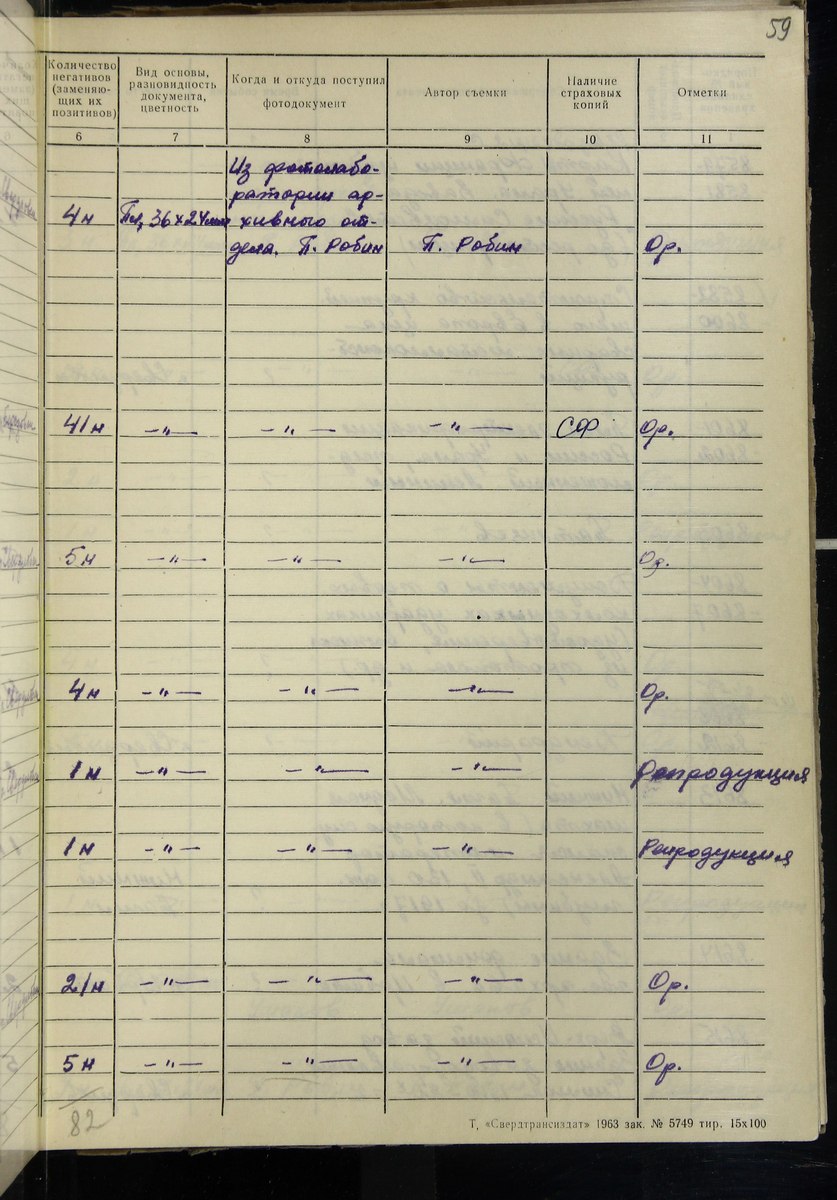 59
Количество
негативов
(заменяю-
щих их
позитивов)
Вид основы,
разновидность
документа,
цветность
Когда и откуда поступил
фотодокумент
Автор съемки
Наличие
страховых
копий
Отметки
6 7 8 9 10 11
Из фотолабо-
ратории ар-
4н Пл, 36×24мм хивного от-
дела. П. Робин П. Робин Ор.
41н —"— —"— —"— СФ Ор.
5н —"— —"— —"— Ор.
4н —"— —"— —"— Ор.
1н —"— —"— —"— Репродукция
1н —"— —"— —"— Репродукция
21н —"— —"— —"— Ор.
5н —"— —"— —"— Ор.
82
Т, «Свердтрансиздат» 1963 зак. № 5749 тир. 15х100